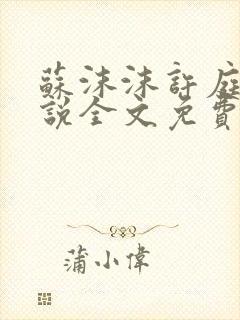 蘇沫沫許庭
說全文免費
蒲小偉